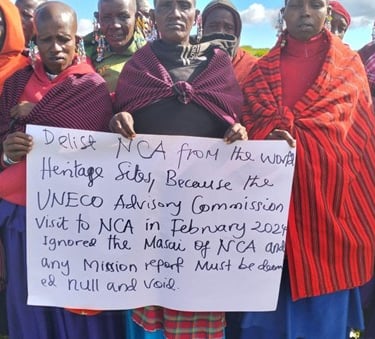 Delist NCA from the World
Heritage Sites, Because the
UNECO Advisory Commission
visit to NCA in February 2024
Ignored the Masai of NCA and
any Mission report Must be deem
ed null and void.